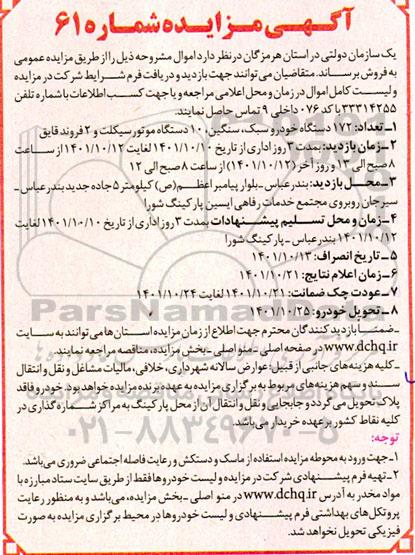 آگهی مزایده شماره ۶۱
یک سازمان دولتی در استان هرمزگان در نظر دارد اموال مشروحه ذیل را از طریق مزایده عمومی
به فروش برساند. متقاضیان می توانند جهت بازدید و دریافت فرم شرایط شرکت در مزایده
و لیست کامل اموال در زمان و محل اعلامی مراجعه و یا جهت کسب اطلاعات با شماره تلفن
۳۳۳۱۴۲۵۵ با کد ۰۷۶ داخلی ۹ تماس حاصل نمایند.
۱ـ تعداد: ۱۷۲ دستگاه خودرو سبک، سنگین، ۱۰۰ دستگاه موتور سیکلت و ۲ فروند قایق
۲ـ زمان بازدید: بمدت ۳ روز اداری از تاریخ ۱۴۰۱/۱۰/۱۰ لغایت ۱۴۰۱/۱۰/۱۲ از ساعت
۸ صبح الی ۱۳ و روز آخر (۱۴۰۱/۱۰/۱۲) از ساعت ۸ صبح الی ۱۲
۳ـ محل بازدید: بندرعباس ـ بلوار پیامبر اعظم(ص) کیلومتر ۵ جاده جدید بندرعباس ـ
سیرجان روبروی مجتمع خدمات رفاهی ایسین پارکینگ شورا
۴ـ زمان و محل تسلیم پیشنهادات بمدت ۳ روز اداری از تاریخ ۱۴۰۱/۱۰/۱۰ لغایت
۱۴۰۱/۱۰/۱۲ بندرعباس ـ پارکینگ شورا
۵ـ تاریخ انصراف: ۱۴۰۱/۱۰/۱۳
۶ـ زمان اعلام نتایج: ۱۴۰۱/۱۰/۲۱
۷ـ عودت چک ضمانت: ۱۴۰۱/۱۰/۲۱ لغایت ۱۴۰۱/۱۰/۲۴
۸ـ تحویل خودرو: ۱۴۰۱/۱۰/۲۵
ـ ضمنا بازدید کنندگان محترم جهت اطلاع از زمان مزایده استان ها می توانند به سایت
www.dchq.ir در صفحه اصلی ـ منو اصلی ـ بخش مزایده، مناقصه مراجعه نمایند.
ـ کلیه هزینه های جانبی از قبیل: عوارض سالانه شهرداری، خلافی، مالیات مشاغل و نقل و انتقال
سند و سهم هزینه های مربوط به برگزاری مزایده به عهده برنده مزایده خواهد بود. خودرو فاقد
پلاک تحویل می گردد و جابجایی و نقل و انتقال آن از محل پارکینگ به مراکز شماره گذاری در
کلیه نقاط کشور بر عهده خریدار می باشد.
توجه:
۱ـ جهت ورود به محوطه مزایده استفاده از ماسک و دستکش و رعایت فاصله اجتماعی ضروری می باشد.
۲ـ تهیه فرم پیشنهادی شرکت در مزایده و لیست خودروها فقط از طریق سایت ستاد مبارزه با
مواد مخدر به آدرس www.dchq.ir در منو اصلی ـ بخش مزایده، می باشد و به منظور رعایت
پروتکل های بهداشتی فرم پیشنهادی و لیست خودروها در محیط برگزاری مزایده به صورت
فیزیکی تحویل نخواهد شد.
ParsNamadData
۰۲۱-۸۸۳۴۹۶۷۰-۵